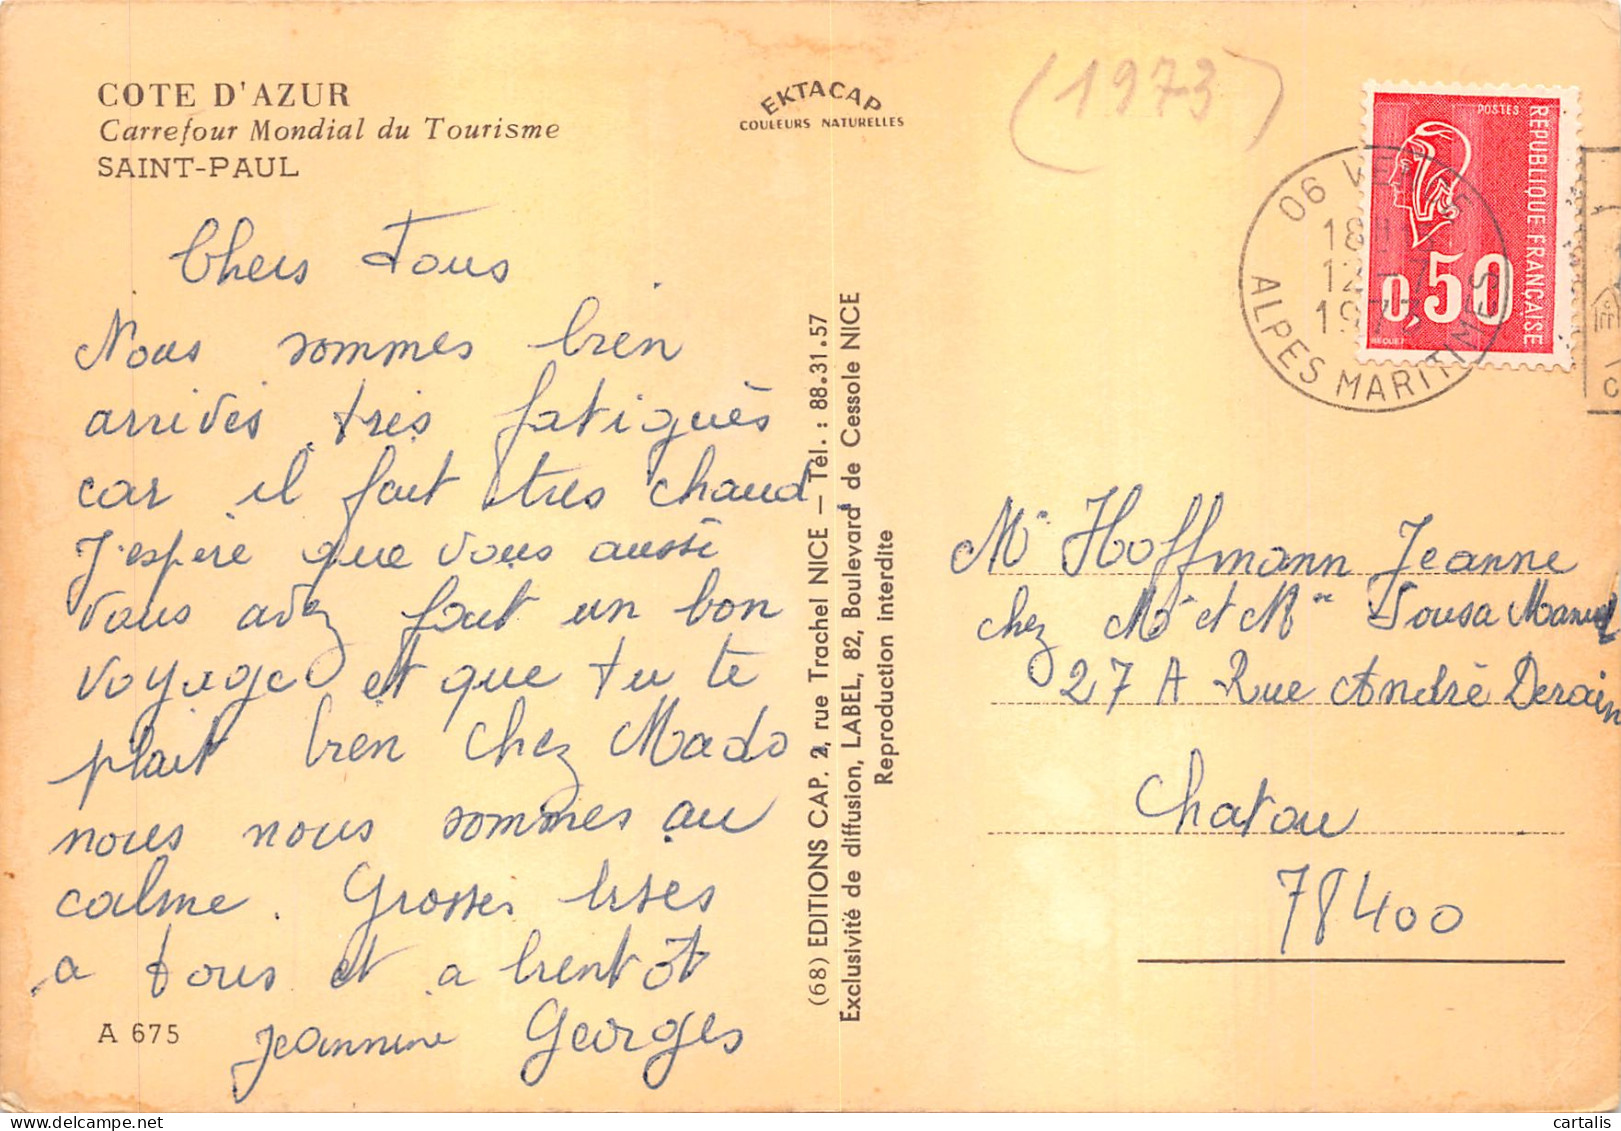 COTE D'AZUR
Carrefour Mondial du Tourisme
SAINT-PAUL
EKTACAP
COULEURS NATURELLES
(1973)
POSTES
REPUBLIQUE FRANÇAISE
0,50
BEQUET
06 VENCE
18H
12-7
197
ALPES MARITIMES
Chers Tous
Nous sommes bien
arrivés très fatigués
car il fait très chaud
J'espère que vous aussi
vous avez fait un bon
voyage et que tu te
plait bien chez Mado
nous nous sommes au
calme. Grosses bises
a tous et a bientôt
Jeannine Georges
A 675
(68) EDITIONS CAP. 2, rue Trachel NICE — Tél. : 88.31.57
Exclusivité de diffusion, LABEL, 82, Boulevard de Cessole NICE
Reproduction interdite
Mr Hoffmann Jeanne
chez Mr et Mme Sousa Manuel
27 A Rue André Derain
Chatou
78400